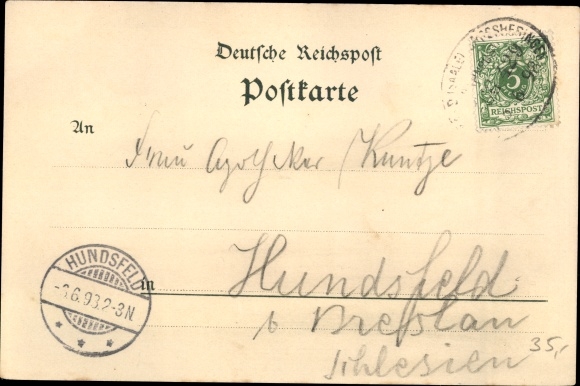 Deutsche Reichspost
Postkarte
5
REICHSPOST
An
Frau Apotheker Kuntze
HUNDSFELD
-3.6.98.2-3N.
in
Hundsfeld
b Breßlau
Schlesien
35,-